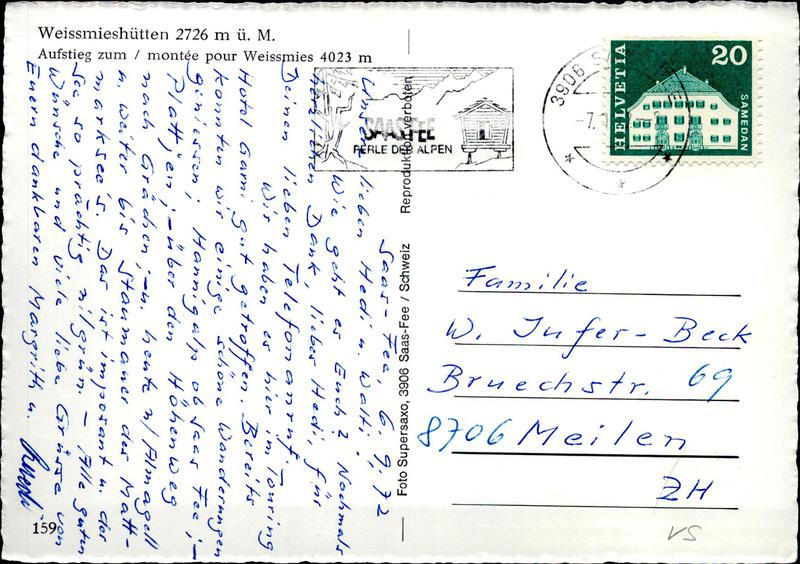 Weissmieshütten 2726 m ü. M.
Aufstieg zum / montée pour Weissmies 4023 m
SAAS-FEE
PERLE DER ALPEN
3906 SAAS-FEE
-7.
HELVETIA
20
SAMEDAN
Saas-Fee, 6.9.72
Unsere lieben Hedi u. Walti,
Wie geht es Euch? Nochmals
herzlichen Dank, lieber Hedi, für
Deinen lieben Telefonanruf.
Wir haben es hier im Touring
Hotel Garni gut getroffen. Bereits
konnten wir einige schöne Wanderungen
geniessen; Hannigalp ob Saas Fee; –
Plattjen; – über den Höhenweg
nach Grächen; – u. heute n/Almagell
u. weiter bis Staumauer des Matt-
marksee's. Das ist imposant u. der
See so prächtig milgrün. – Alle guten
Wünsche und viele liebe Grüsse von
Euern dankbaren Margrith u.
159
Reproduktion verboten
Foto Supersaxo, 3906 Saas-Fee / Schweiz
Familie
W. Jufer-Beck
Bruechstr. 69
8706 Meilen
ZH
VS